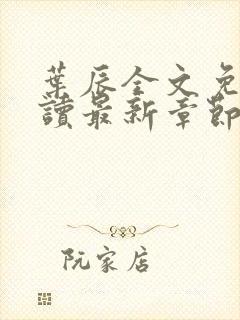 葉辰全文免
讀最新章節
阮家店